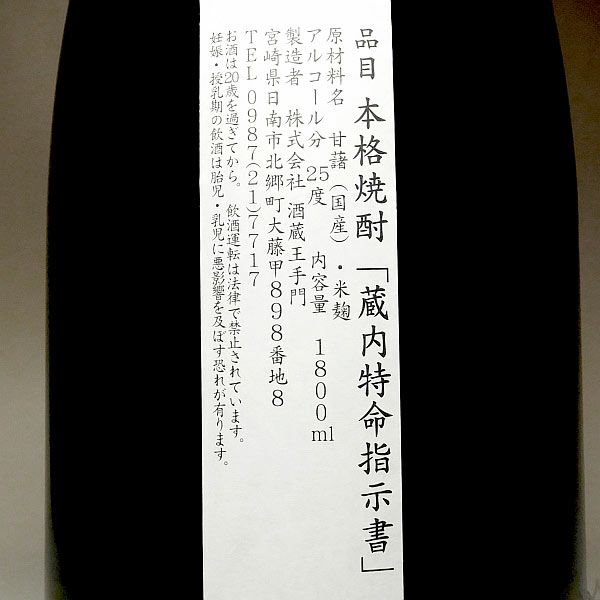 品目 本格焼酎「蔵内特命指示書」
原材料名 甘藷(国産)・米麹
アルコール分 25度 内容量 1800ml
製造者 株式会社 酒蔵王手門
宮崎県日南市北郷町大藤甲898番地8
TEL0987(21)7717
お酒は20歳を過ぎてから。飲酒運転は法律で禁止されています。
妊娠・授乳期の飲酒は胎児・乳児に悪影響を及ぼす恐れが有ります。